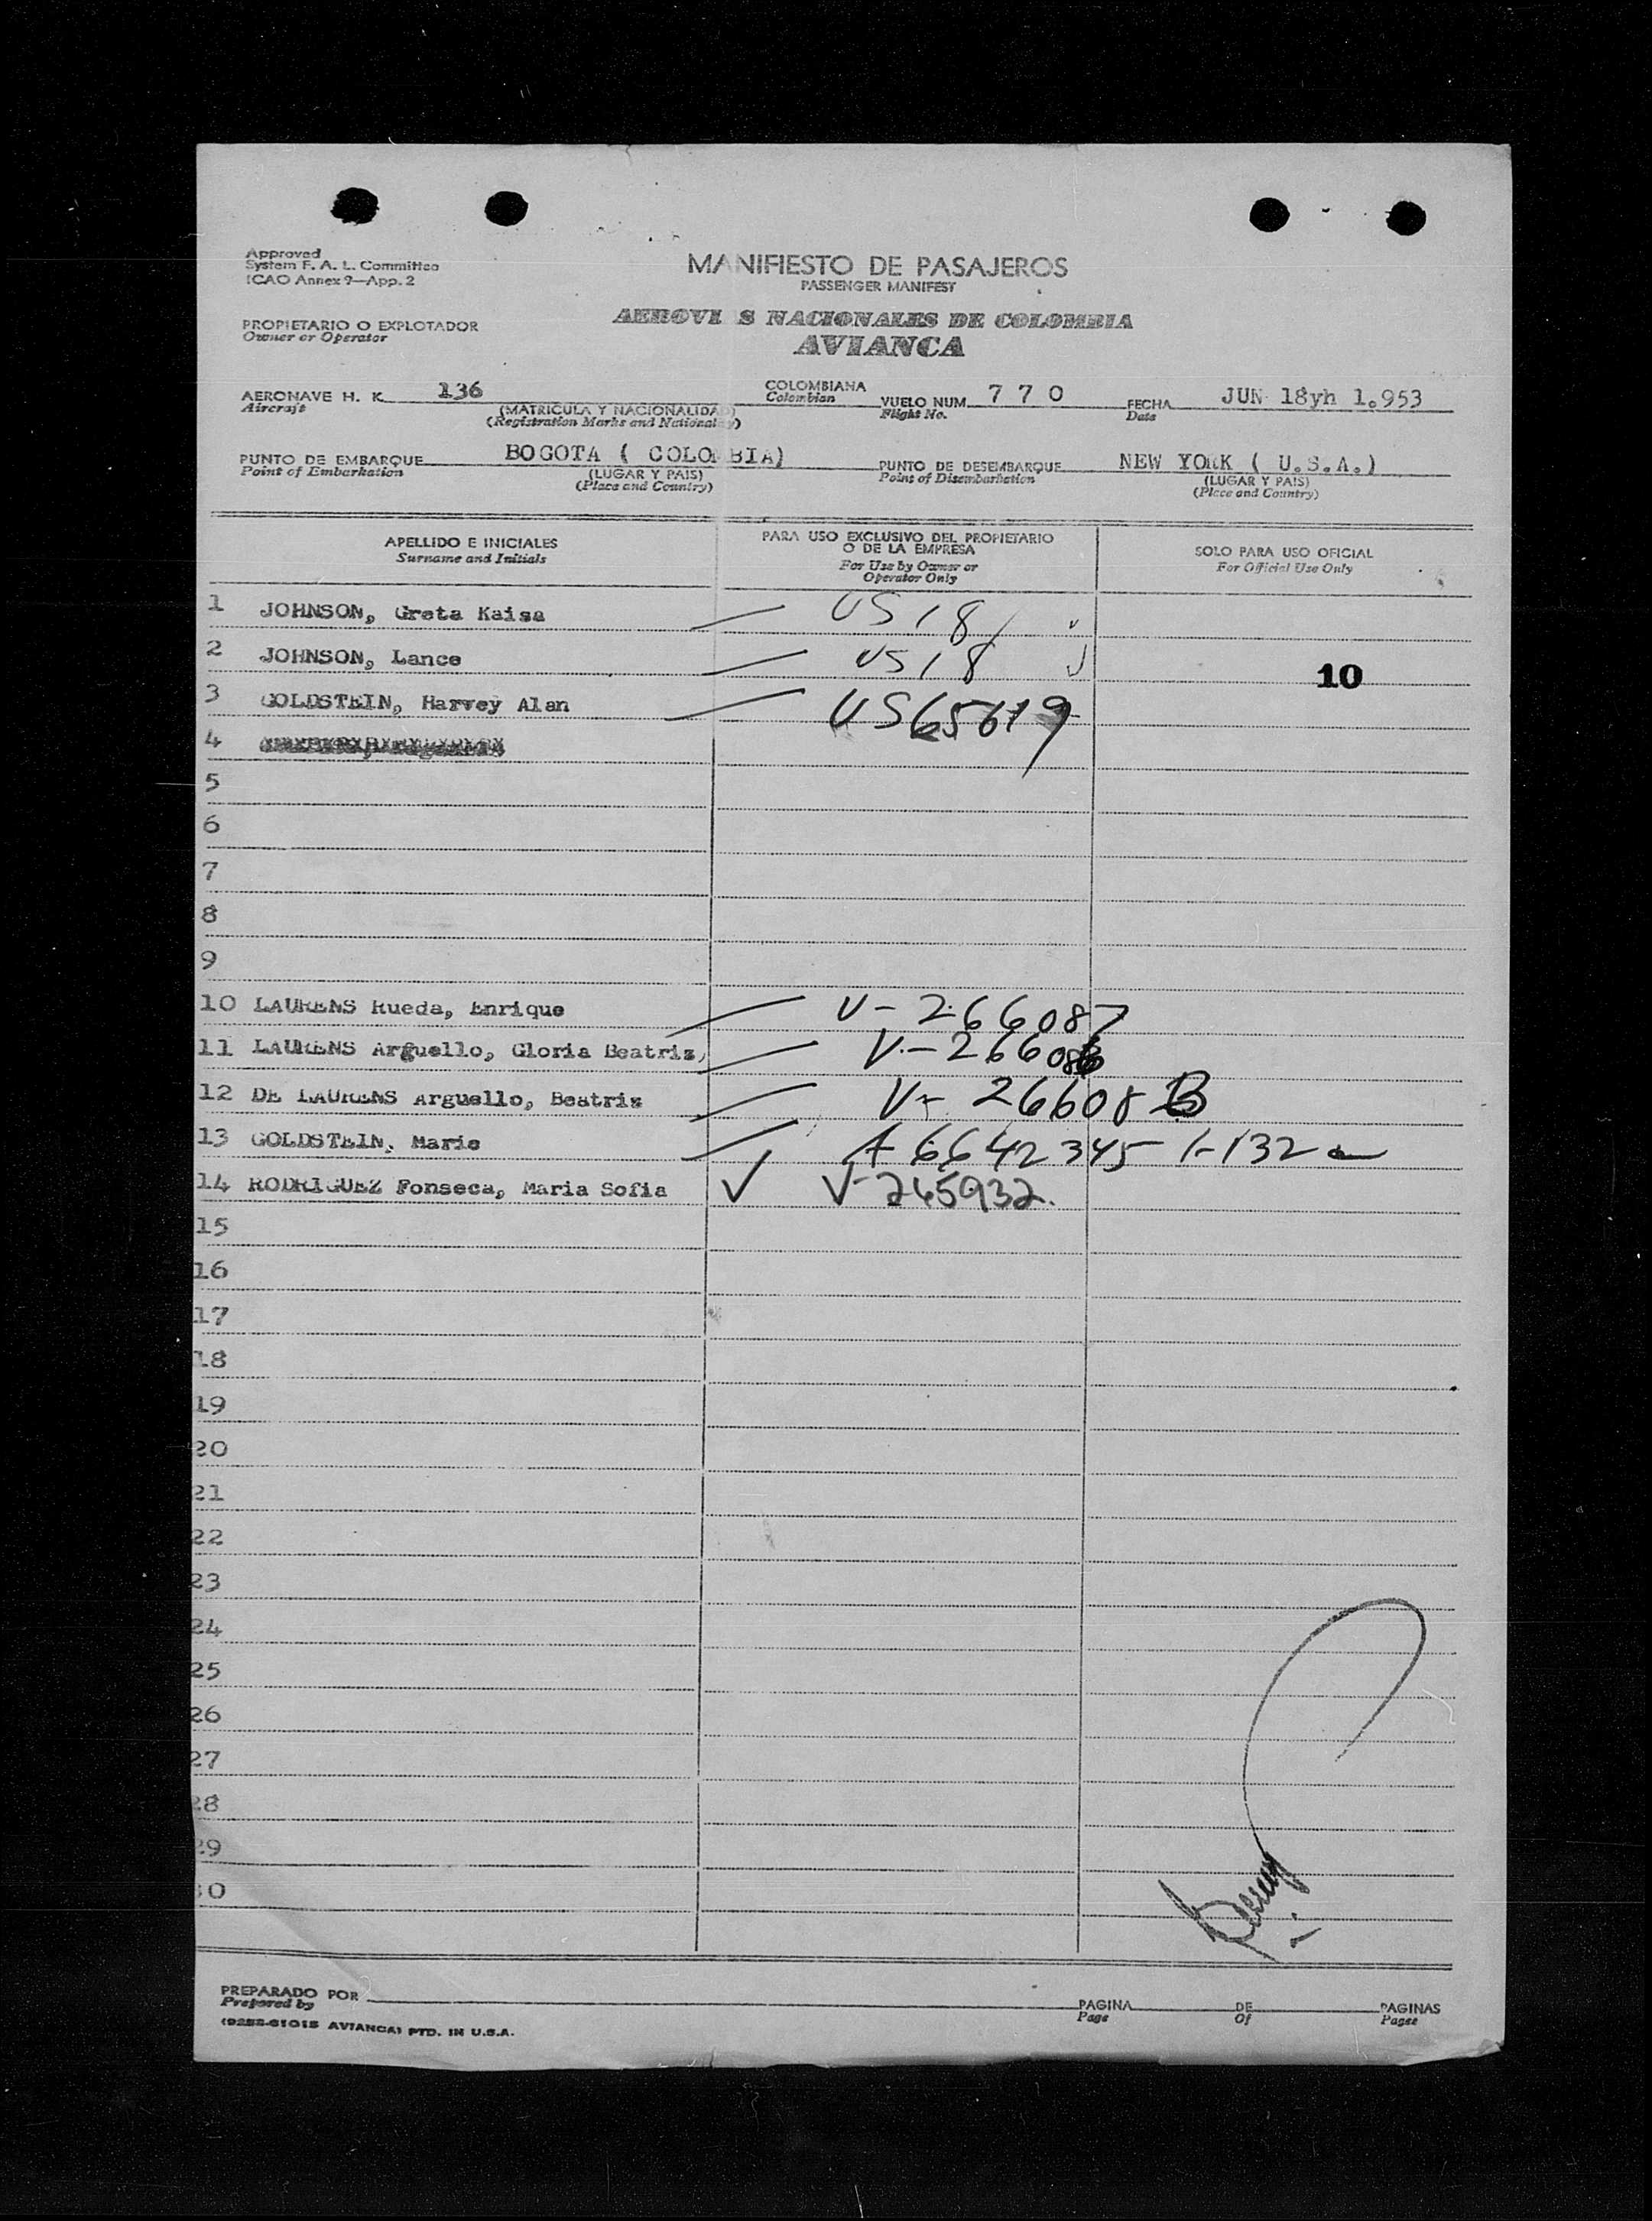 Approved
System F. A. L. Committee
ICAO Annex 9—App. 2
MANIFIESTO DE PASAJEROS
PASSENGER MANIFEST
PROPIETARIO O EXPLOTADOR
Owner or Operator
AEROVI S NACIONALES DE COLOMBIA
AVIANCA
AERONAVE H. K. 136 COLOMBIANA VUELO NUM. 7 7 0 FECHA JUN 18yh 1.953
Aircraft (MATRICULA Y NACIONALIDAD) Colombian Flight No. Date
(Registration Marks and Nationality)
PUNTO DE EMBARQUE BOGOTA ( COLOMBIA) PUNTO DE DESEMBARQUE NEW YORK ( U.S.A.)
Point of Embarkation (LUGAR Y PAIS) Point of Disembarkation (LUGAR Y PAIS)
(Place and Country) (Place and Country)
APELLIDO E INICIALES
Surname and Initials
PARA USO EXCLUSIVO DEL PROPIETARIO
O DE LA EMPRESA
For Use by Owner or
Operator Only
SOLO PARA USO OFICIAL
For Official Use Only
1 JOHNSON, Greta Kaisa US 18
2 JOHNSON, Lance US 18
10
3 GOLDSTEIN, Harvey Alan US65619
4
5
6
7
8
9
10 LAURENS Rueda, Enrique V-266087
11 LAURENS Arguello, Gloria Beatriz, V-266086
12 DE LAURENS Arguello, Beatriz V-26608B
13 GOLDSTEIN, Marie A6642345 1-132
14 RODRIGUEZ Fonseca, Maria Sofia V-245932.
15
16
17
18
19
20
21
22
23
24
25
26
27
28
29
30
PREPARADO POR PAGINA DE PAGINAS
Prepared by Page Of Pages
(9288-61015 AVIANCA) PTD. IN U.S.A.